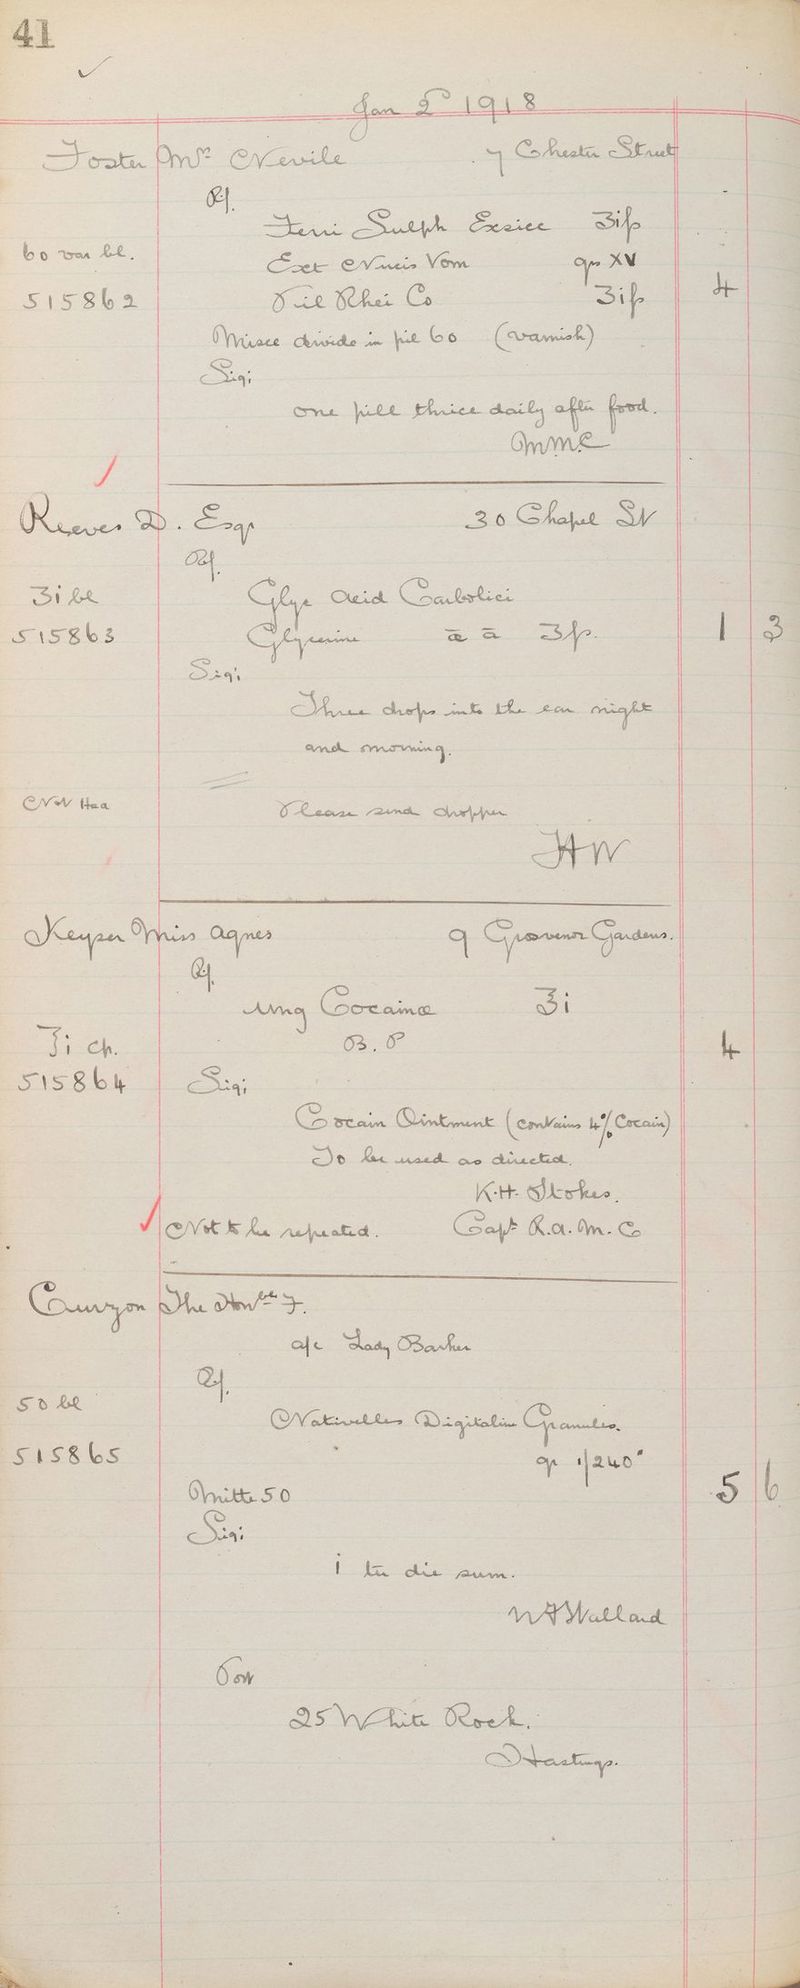 41
Jan 2nd 1918
Foster Mrs Nevile 7 Chester Street
Rx.
Ferri Sulph Exsicc ʒifs
60 var bl.
Ext Nucis Vom grs XV
515862 Pil Rhei Co ʒifs 4
Misce divide in pil 60 (varnish)
Sig:
one pill thrice daily after food.
MMC
Reeves D. Esqr 30 Chapel St
Rx.
ʒi bl Glyc Acid Carbolici
515863 Glycerine āā ʒfs. 1 3
Sig:
Three drops into the ear night
and morning.
Not Hea Please send dropper
HW
Keyser Miss Agnes 9 Grosvenor Gardens.
Rx.
Ung Cocainæ ℥i
℥i ch. B.P 4
515864 Sig:
Cocain Ointment (contains 4% Cocain)
To be used as directed.
K.H. Stokes.
Not to be repeated. Capt R.A.M.C
Curzon The Honble F.
a/c Lady Barker
Rx.
50 bl Nativelles Digitaline Granules.
515865 gr 1/240"
Mitte 50 5 6
Sig:
i ter die sum.
Post
25 White Rock.
Hastings.